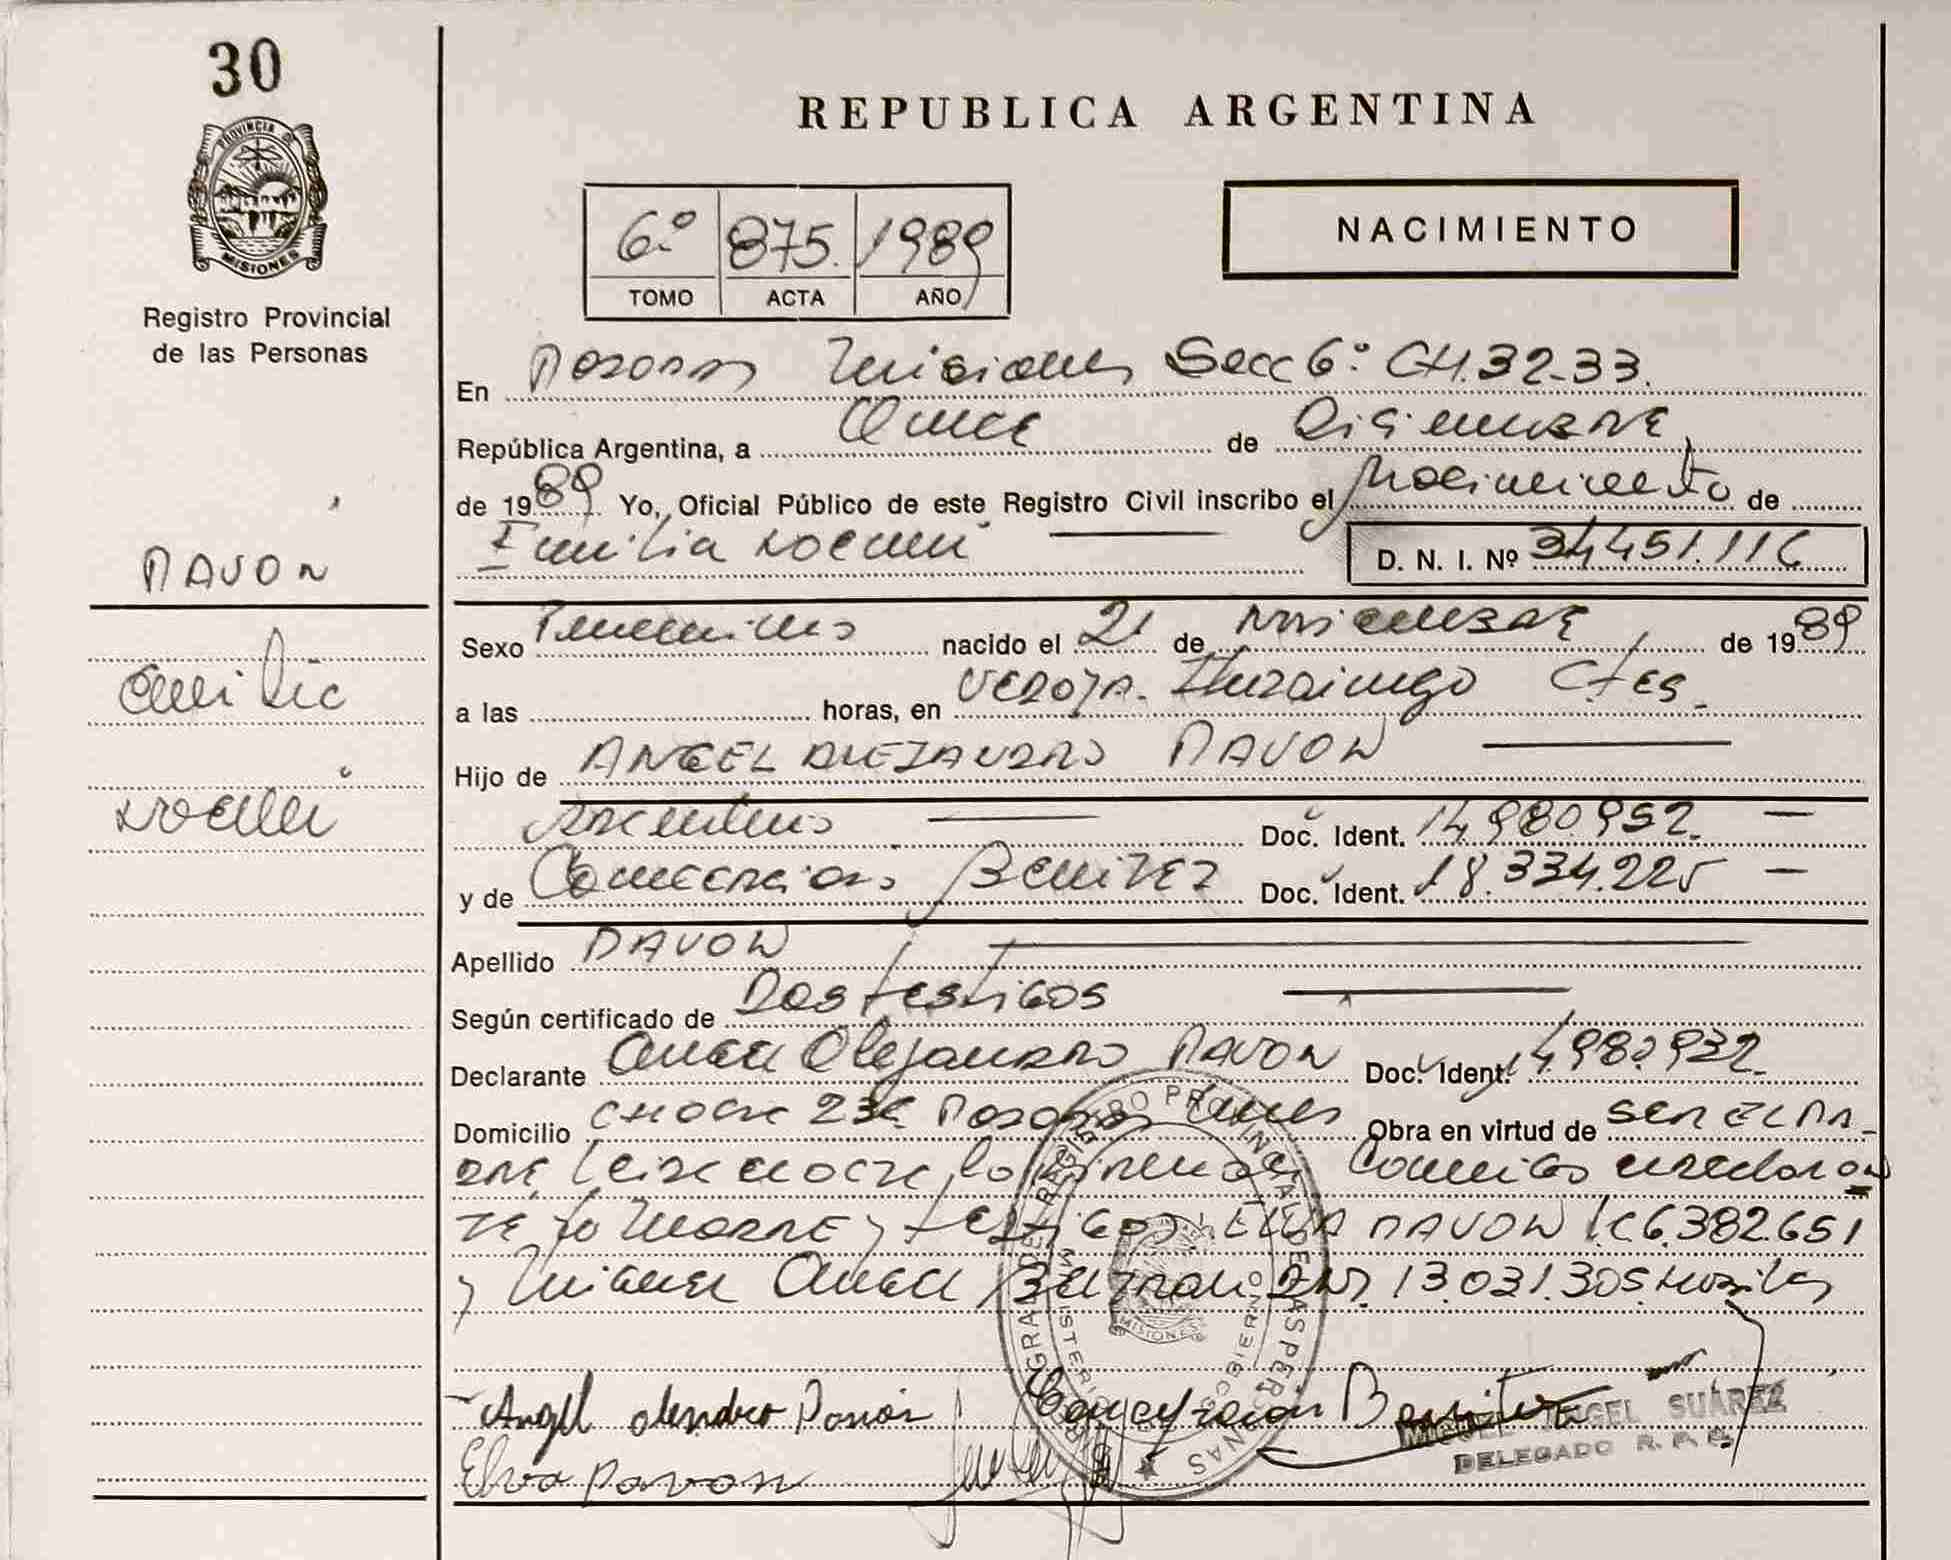 30
PROVINCIA DE
MISIONES
Registro Provincial
de las Personas
PAVON
Emilia
Noemi
REPUBLICA ARGENTINA
6º 875. 1989
TOMO ACTA AÑO
NACIMIENTO
En Posadas Misiones Secc 6º CH.32-33.
República Argentina, a Once de Diciembre
de 1989 Yo, Oficial Público de este Registro Civil inscribo el Nacimiento de
Emilia Noemi
D. N. I. Nº 34.451.116
Sexo Femenino nacido el 21 de Noviembre de 1989
a las horas, en Ituzaingo Ctes.
Hijo de ANGEL ALEJANDRO PAVON
Argentino Doc. Ident. 14.980.952.
y de Concepcion Benitez Doc. Ident. 18.334.225
Apellido PAVON
Según certificado de Dos testigos
Declarante Angel Alejandro PAVON Doc. Ident. 14980.932
Domicilio Posadas Obra en virtud de SER EL PA-
DRE Leida
madre y testigos ELVA PAVON 6.382.651
y Miguel Angel DNI. 13.031.305
Angel alendro Pavon Concepcion Benitez
Elva Pavon
MIGUEL ANGEL SUÁREZ
DELEGADO R. P. P.
REGISTRO PROVINCIAL DE LAS PERSONAS
MISIONES